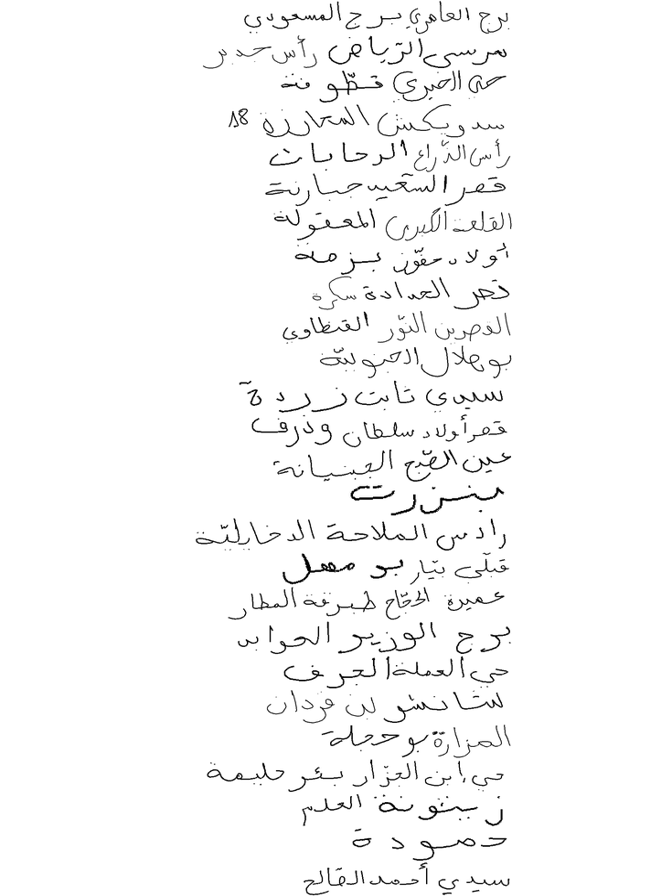 برج العامري برج المسعودي
مرسى الرياض رأس حدبر
حي الخيري قطونة
سدويكش المتحارزة 18
رأس الذراع الرحابات
قصر السعيد حبارنة
القلعة الكبرى المعقولة
أولاد حفوز بزمة
قصر الحدادة سكرة
القصرين النّور القنطاوي
بوهلال الحنوشة
سيدي ثابت زردة
قصر أولاد سلطان وذرف
عين الصّبح الجنيانة
بنزرت
رادس الملاحة الدخايليّة
قبلّي بيّار بومهل
عميرة الحجّاج طبرقة المطار
برج الوزير الحوايد
حي العملة الجرف
ستانشر بن قردان
المزارة بوحجلة
حي ابن الجزّار بئر حليمة
زيتونة العلم
حمودة
سيدي أحمد القالح